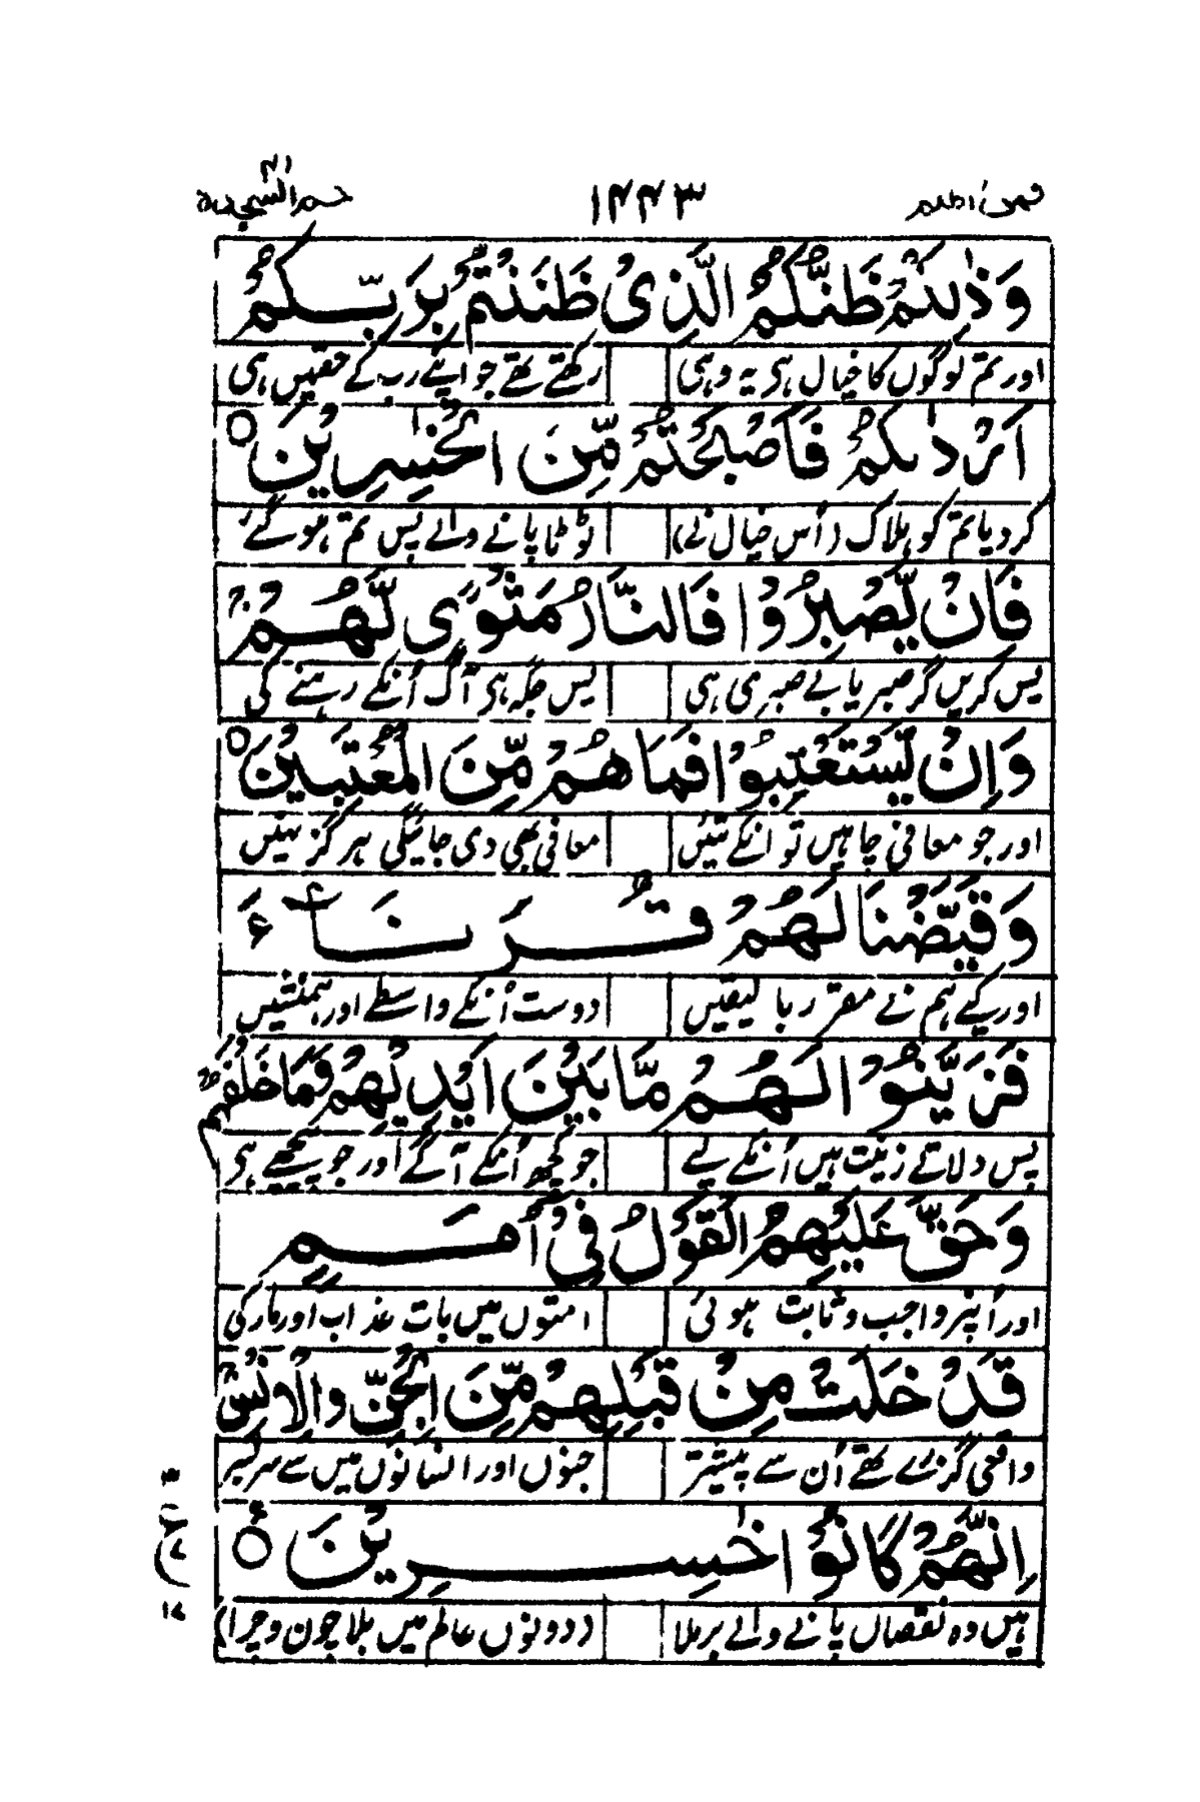 فمن اظلم ۱۴۴۳ حم السجدة ۴۱
وَذٰلِكُمْ ظَنُّكُمُ الَّذِىْ ظَنَنْتُمْ بِرَبِّكُمْ
اور تم لوگوں کا خیال ہی یہ وہی رکھتے تھے جو اپنے رب کے حقمیں ہی
اَرْدٰىكُمْ فَاَصْبَحْتُمْ مِّنَ الْخٰسِرِيْنَ ○
کر دیا تم کو ہلاک (اُس خیال نے) ٹوٹا پانے والے پس تم ہو گئے
فَاِنْ يَّصْبِرُوْا فَالنَّارُ مَثْوًى لَّهُمْ ۚ
پس کریں گر صبر یا بے صبری ہی پس جگہ ہی آگ اُنکے رہنے کی
وَاِنْ يَّسْتَعْتِبُوْا فَمَا هُمْ مِّنَ الْمُعْتَبِيْنَ ○
اور جو معافی چاہیں تو انکے تئیں معافی بھی دی جائیگی ہرگز نہیں
وَقَيَّضْنَا لَهُمْ قُرَنَآءَ
اور کیے ہم نے مقرر بالیقیں دوست اُنکے واسطے اور ہمنشیں
فَزَيَّنُوْا لَهُمْ مَّا بَيْنَ اَيْدِيْهِمْ وَمَا خَلْفَهُمْ
پس دلاتے زینت ہیں اُنکے لیے جو کچھ اُنکے آگے اور جو پیچھے ہی
وَحَقَّ عَلَيْهِمُ الْقَوْلُ فِىْٓ اُمَمٍ
اور اُنپر واجب و ثابت ہوئی امتوں میں بات عذاب اور مار کی
قَدْ خَلَتْ مِنْ قَبْلِهِمْ مِّنَ الْجِنِّ وَالْاِنْسِ ۚ
واقعی گزرے تھے اُن سے پیشتر جنوں اور انسانوں میں سے سربسر
اِنَّهُمْ كَانُوْا خٰسِرِيْنَ ○
ہیں وہ نقصاں پانے والے برملا (دونوں عالم میں بلا چون و چرا)